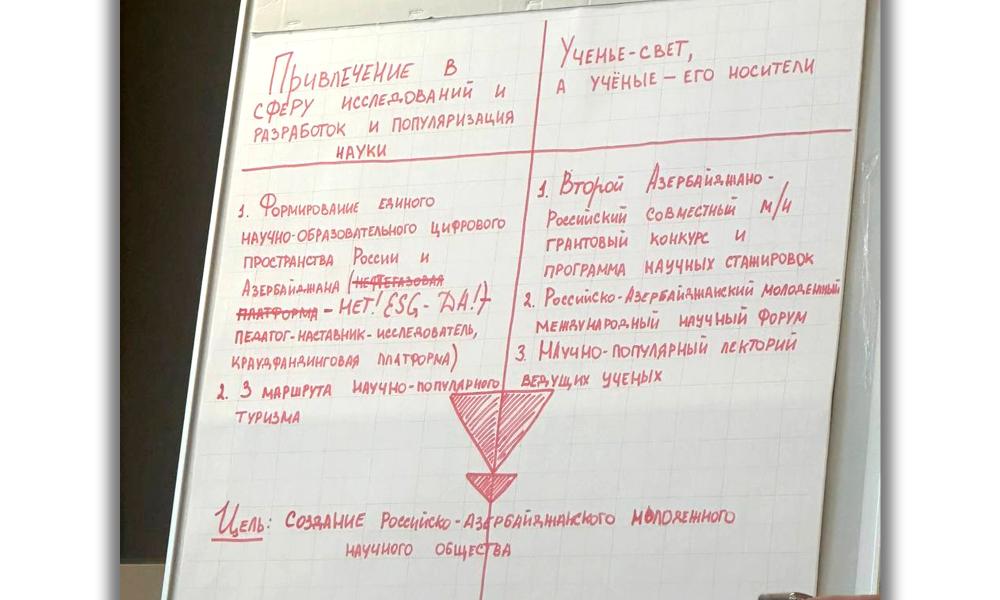 Привлечение в
сферу исследований и
разработок и популяризация
науки
Ученье-свет,
а учёные – его носители
1. Формирование единого
научно-образовательного цифрового
пространства России и
Азербайджана (нефтегазовая
платформа – НЕТ! ESG - DA!)
педагог-наставник-исследователь,
краудфандинговая платформа)
2. 3 маршрута научно-популярного
туризма
1. Второй Азербайджано-
Российский совместный м/н
грантовый конкурс и
программа научных стажировок
2. Российско-Азербайджанский молодежный
международный научный форум
3. Научно-популярный лекторий
ведущих ученых
Цель: создание Российско-Азербайджанского молодежного
научного общества